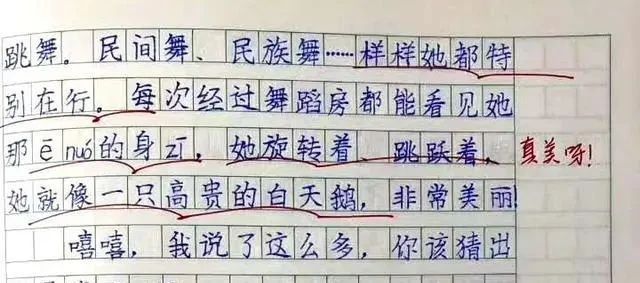 跳舞。民间舞、民族舞……样样她都特
别在行。每次经过舞蹈房都能看见她
那ē nuó的身zī，她旋转着、跳跃着，
真美呀！
她就像一只高贵的白天鹅，非常美丽！
嘻嘻，我说了这么多，你该猜出